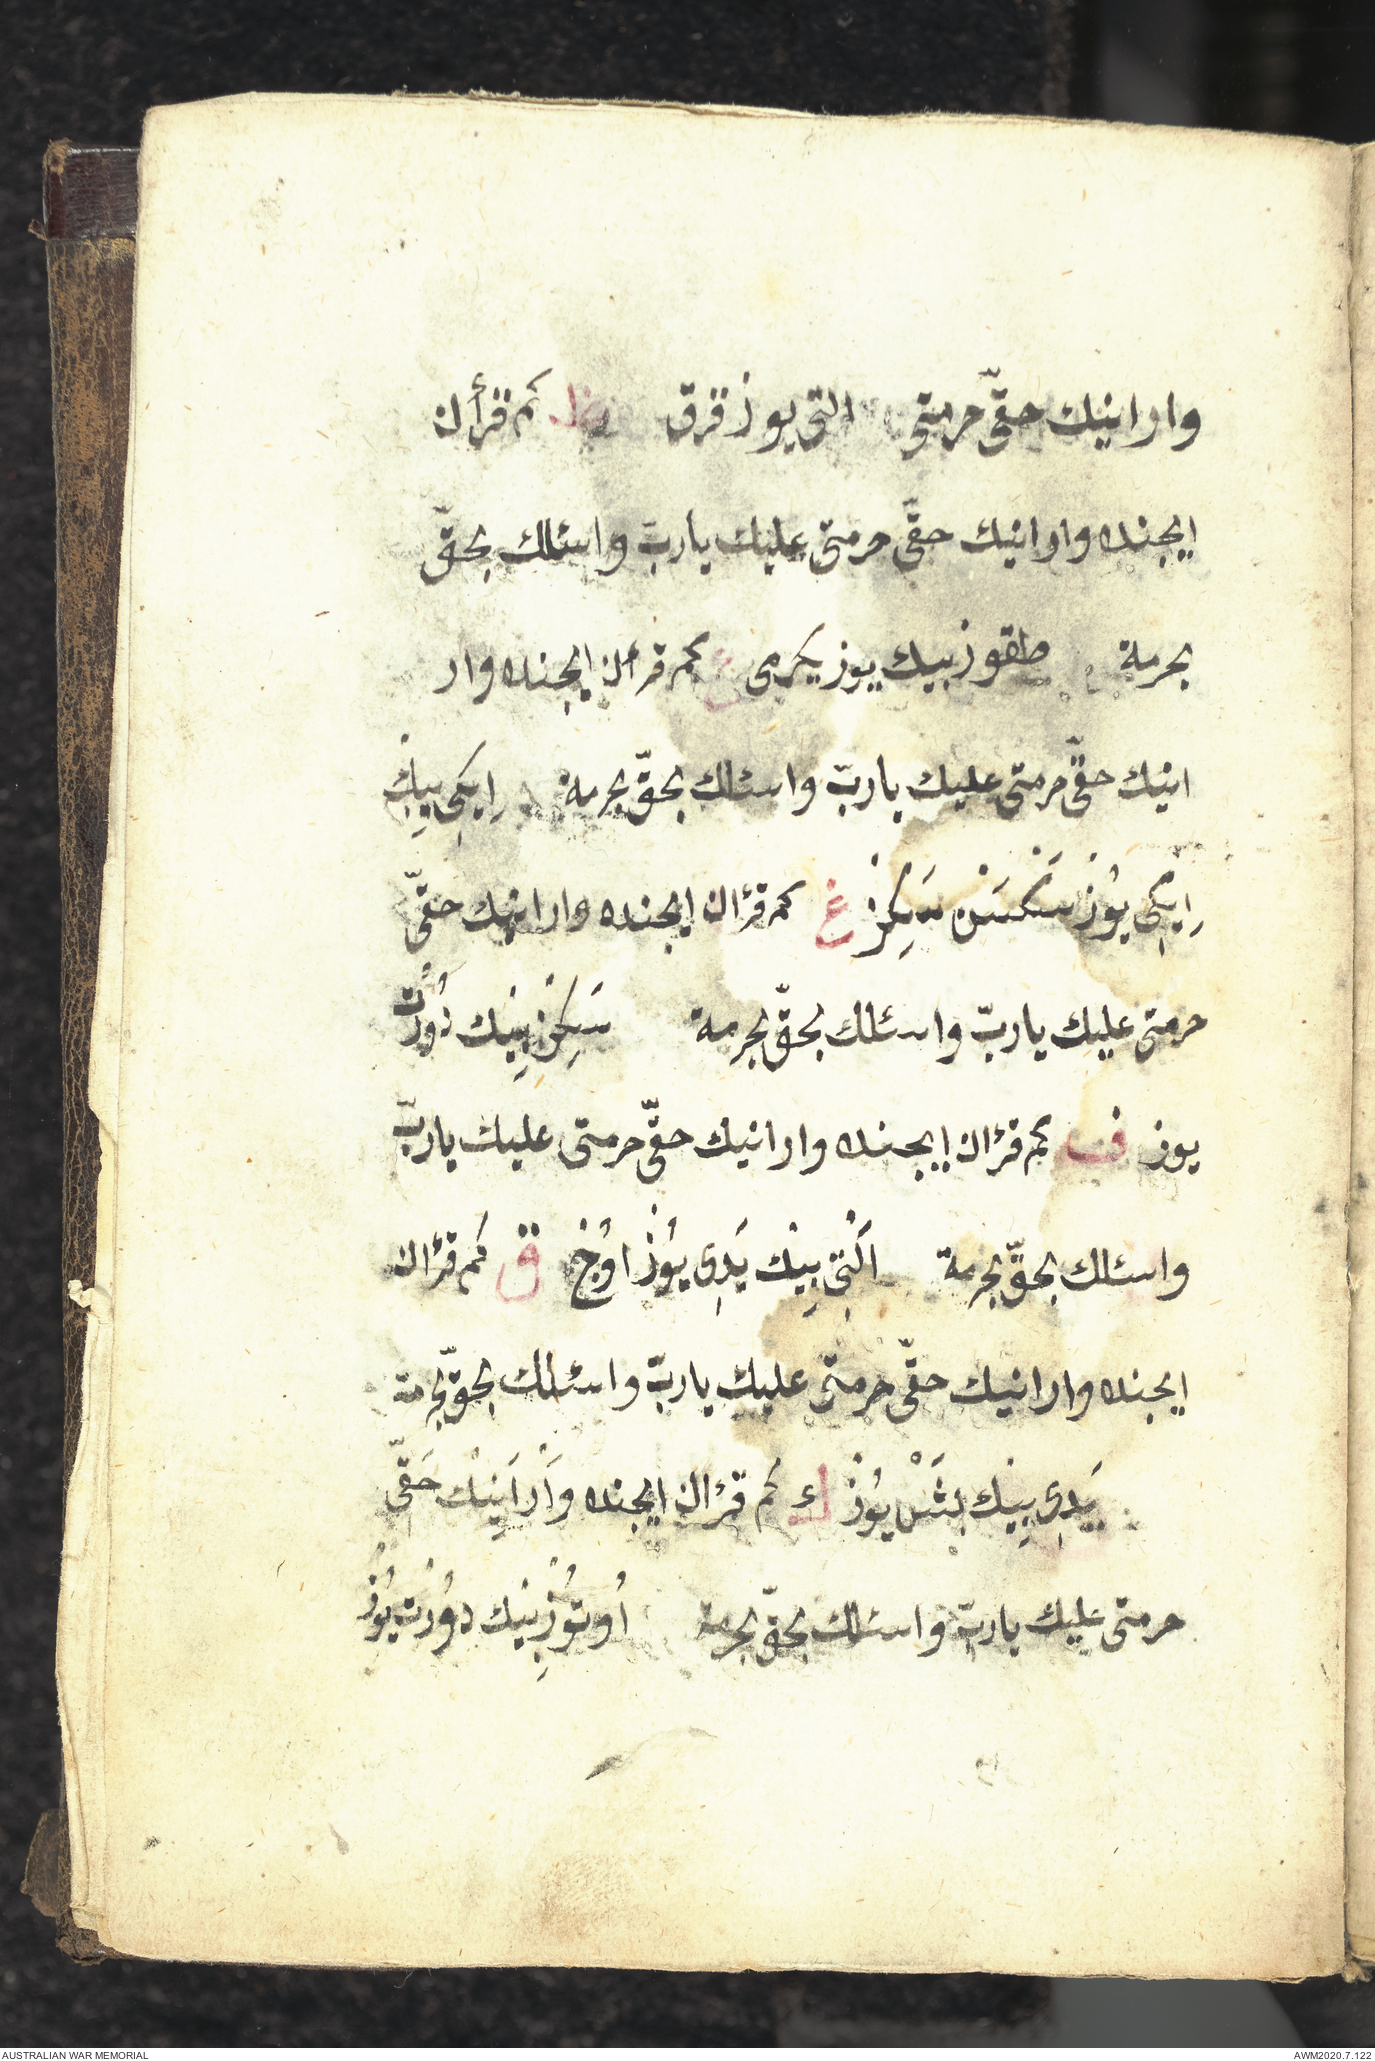 وار انيك حقّى حرمتى التى يوز قرق ظ كم قرأن
ايجنده وار انيك حقّى حرمتى عليك يا ربّ واسئلك بحقّ
بحرمة طقوز بيك يوز يكرمى كم قرأن ايجنده وار
انيك حقّى حرمتى عليك يا ربّ واسئلك بحقّ بحرمة اِيكِى بِيڭ
اِيكِى يُوزْ سَكْسَنْ سَكِزْ غ كم قرئان ايجنده وار انيك حقّى
حرمتى عليك يا ربّ واسئلك بحقّ بحرمة سَكِزْ بِيڭ دُورْتْ
يوز ف كم قرئان ايجنده وار انيك حقّى حرمتى عليك يا ربّ
واسئلك بحقّ بحرمة اَلْتِى بِيڭ يَدِى يُوزْ اوُجْ ق كم قرئان
ايجنده وار انيك حقّى حرمتى عليك يا ربّ واسئلك بحقّ بحرمة
يَدِى بِيڭ بَشْ يُوزْ ك كم قرئان ايجنده وَارْ اَنِيڭْ حَقّى
حرمتى عليك يا ربّ واسئلك بحقّ بحرمة اُوتُوزْ بِيڭ دوُرْت يُوزْ
AUSTRALIAN WAR MEMORIAL
AWM2020.7.122